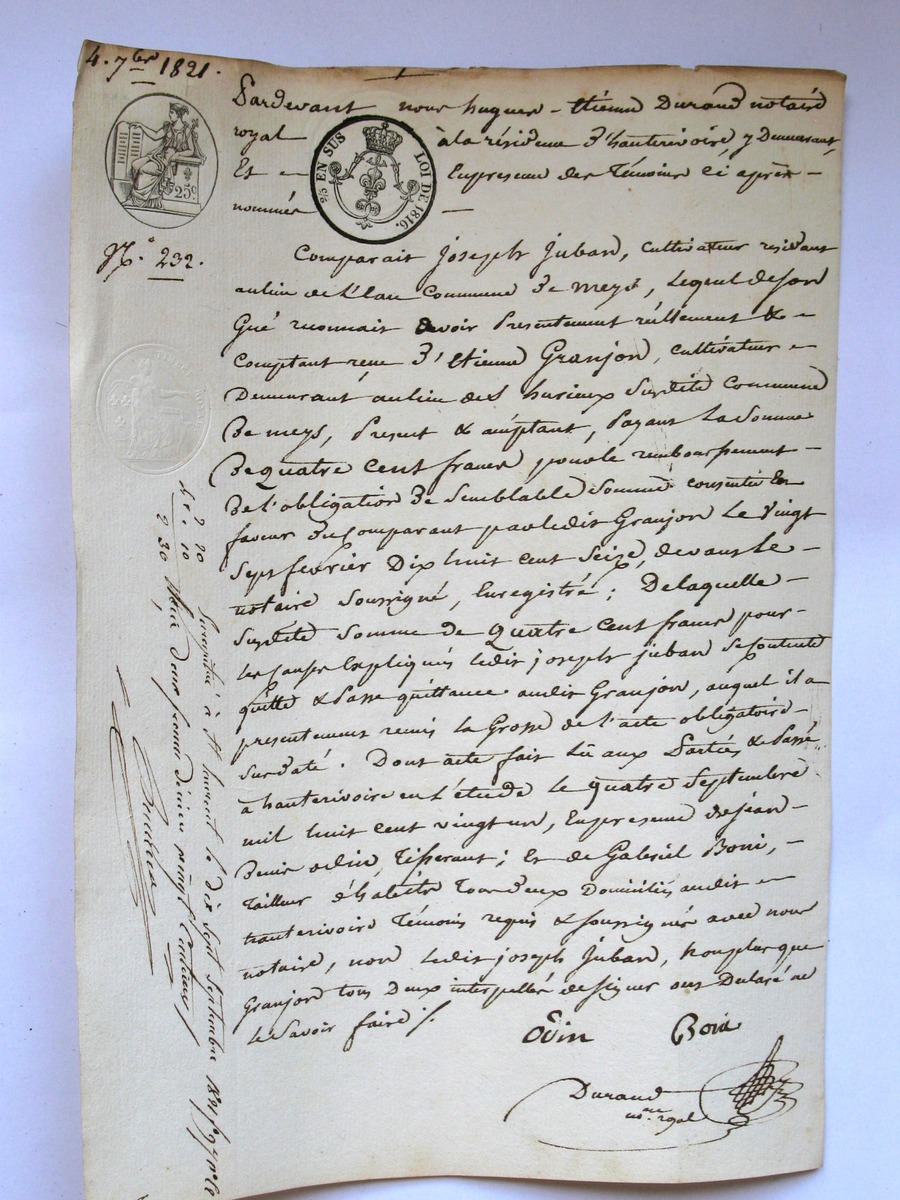 4. 7bre 1821.
25c.
2/5 EN SUS
LOI DE 1816.
N.° 232.
Pardevant nous hugues-étienne Durand notaire
royal à la résidence d'hauterivoire, y Demeurant,
Et en presence des Témoins ci après
nommés
Comparait joseph juban, cultivateur residant
au lieu de commune de meys, Lequel de son
Gré reconnait avoir Presentement réellement &
Comptant reçu d'etienne Granjon, cultivateur
Demeurant au lieu des hurieux Susdite Commune
De meys, Present & acceptant, Payant La Somme
De quatre cent francs pour le remboursement
De l'obligation de Semblable Somme consentie En
faveur du Comparant par ledit Granjon Le Vingt
Sept fevrier Dix huit cent Seize, devant Le
notaire Soussigné, Enregistré; De laquelle
Susdite Somme de Quatre cent francs pour
les causes Expliqués ledit joseph juban Se contente
quitte & Passe quittance audit Granjon, auquel il a
presentement remis la Grosse de l'acte obligatoire
Surdaté. Dont acte fait Lû aux Parties & Passé
à hauterivoire en L'étude le quatre Septembre
mil huit cent vingt un, En presence de jean
Denis odin, Tisserant; Et de Gabriel Boni,
Tailleur d'habits Tous deux Domiciliés audit
hauterivoire Témoins requis & soussignés avec nous
notaire, non ledit joseph juban, non plus que
Granjon tous deux interpellés de Signer ont Declaré ne
le Savoir faire ./.
Odin Boni
Durand
no.re royal
2 20
10
2 30
Enregistré à St laurent le dix Sept Septembre 1821
Reçu deux francs vingt Centimes